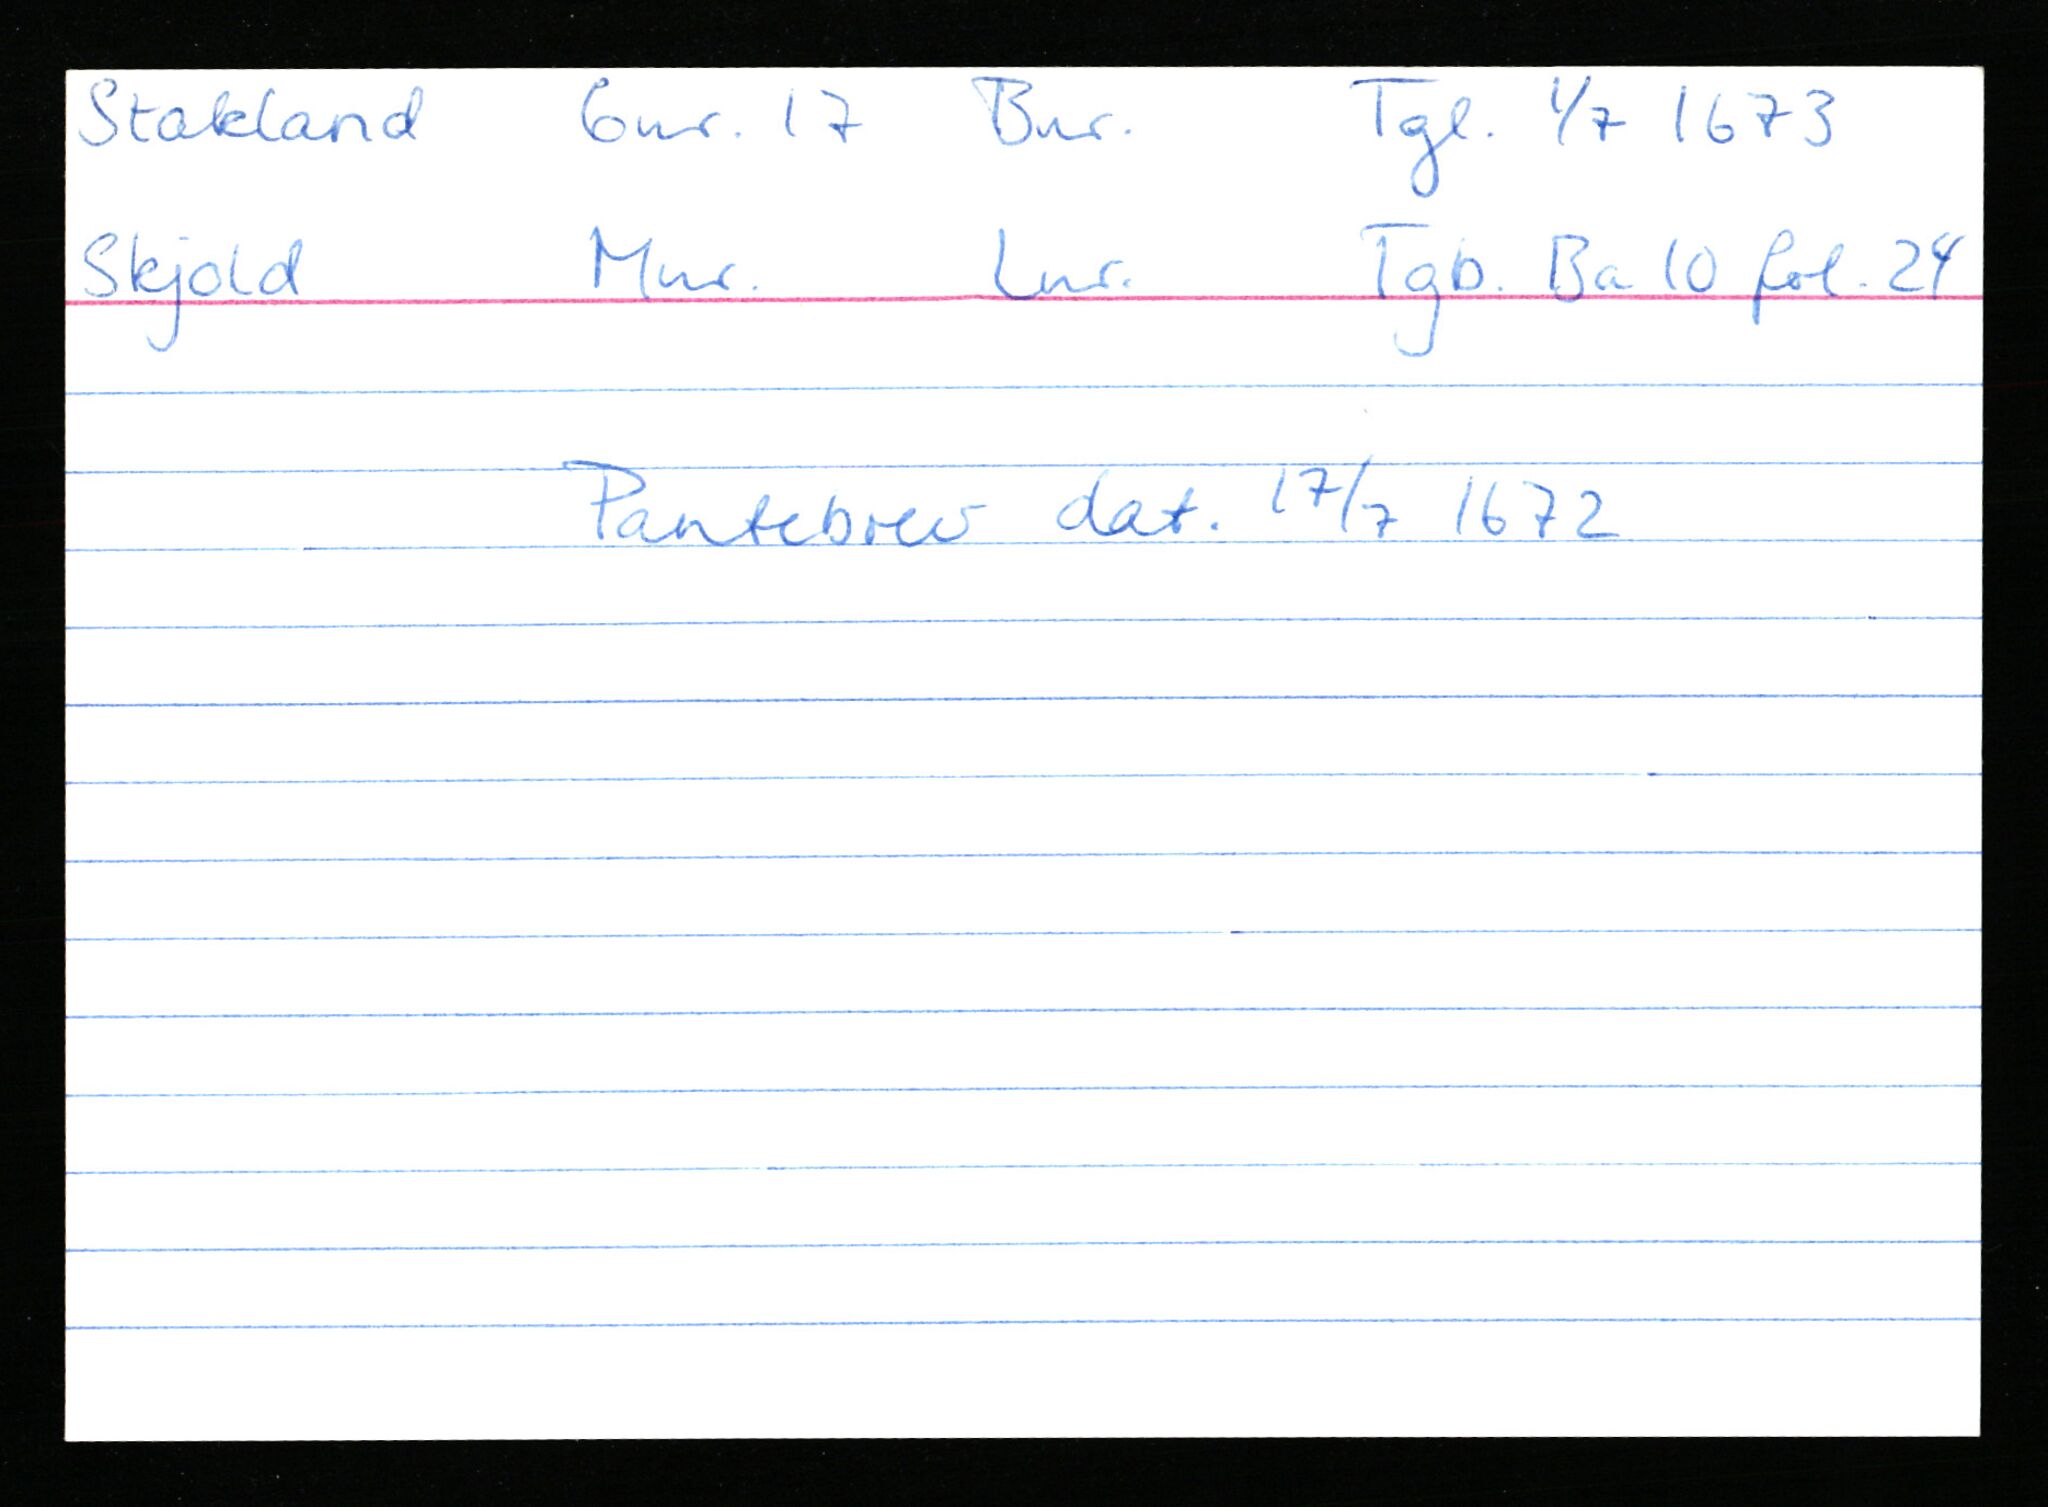 Stakland Gnr. 17 Bnr. Tgl. 1/7 1673
Skjold Mnr. Lnr. Tgb. Ba 10 fol. 24
Pantebrev dat. 17/7 1672